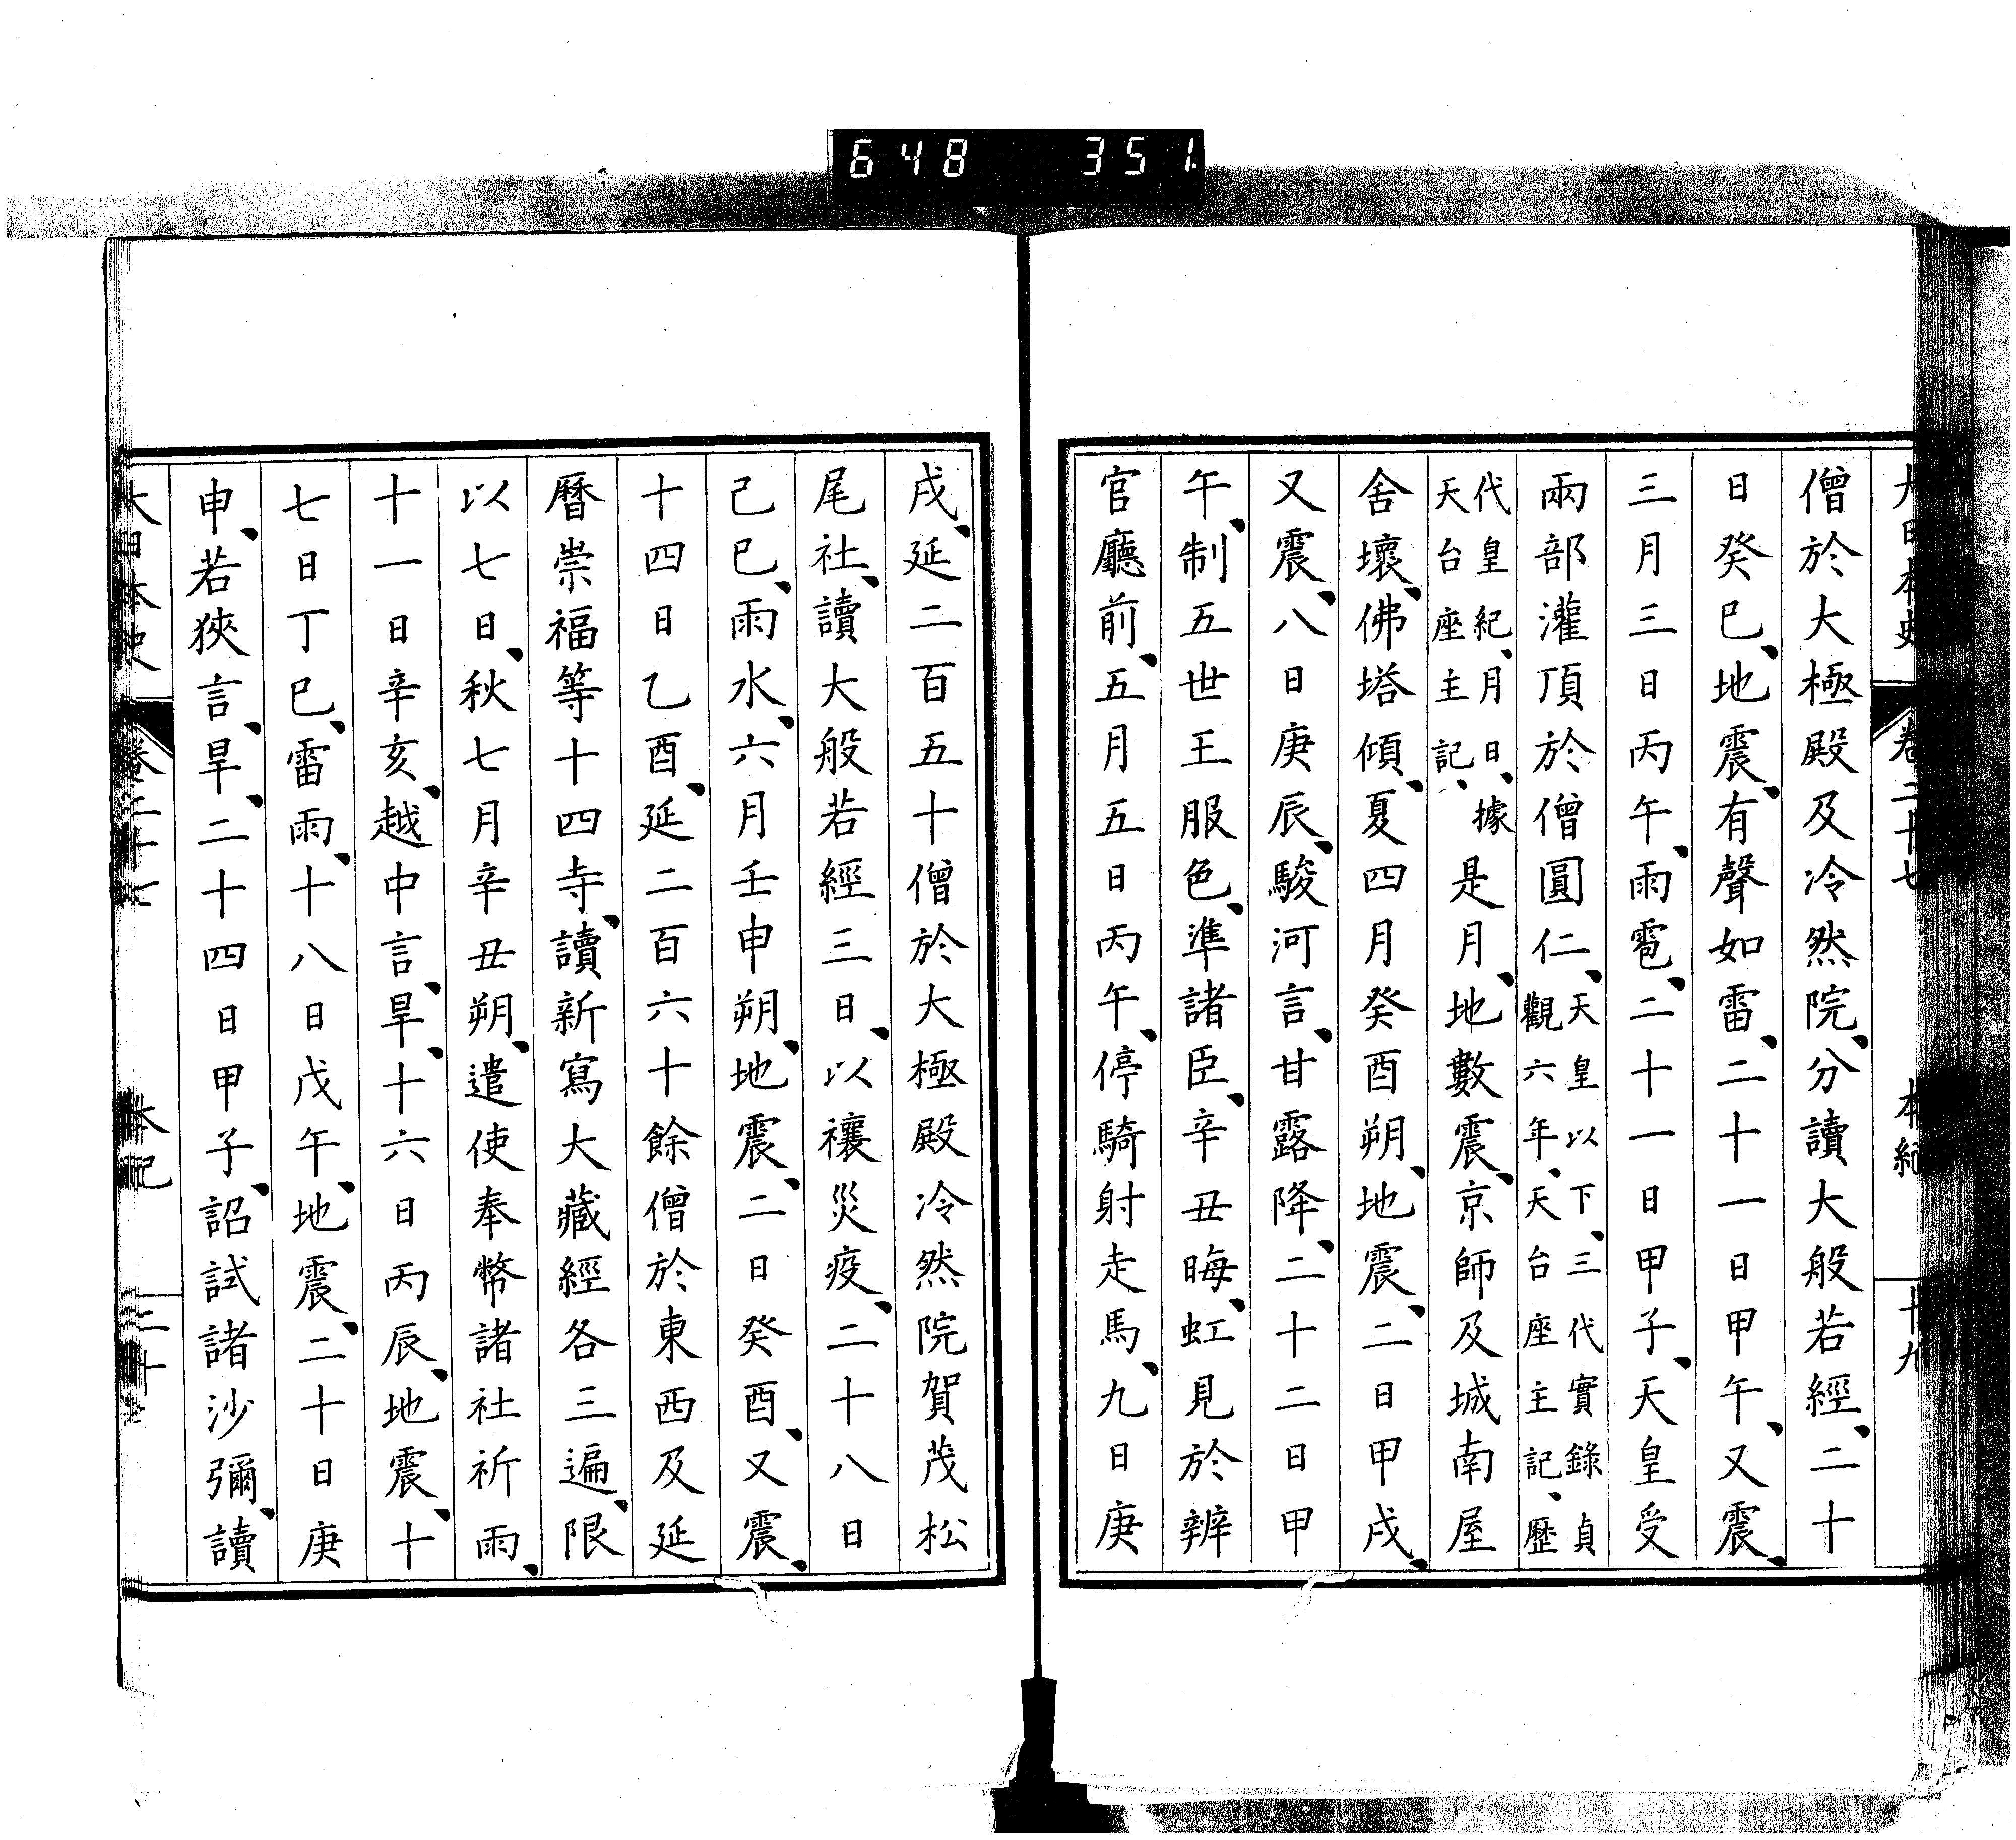 648 351
大日本史 卷二十七 本紀 十九
僧於大極殿及冷然院、分讀大般若經、二十
日癸巳、地震、有聲如雷、二十一日甲午、又震、
三月三日丙午、雨雹、二十一日甲子、天皇受
兩部灌頂於僧圓仁、天皇以下、三代實錄貞觀六年、天台座主記、歷
代皇紀、月日、據天台座主記、是月、地數震、京師及城南屋
舍壞、佛塔傾、夏四月癸酉朔、地震、二日甲戌、
又震、八日庚辰、駿河言、甘露降、二十二日甲
午、制五世王服色、準諸臣、辛丑晦、虹見於辨
官廳前、五月五日丙午、停騎射走馬、九日庚
戌、延二百五十僧於大極殿冷然院賀茂松
尾社、讀大般若經三日、以禳災疫、二十八日
己巳、雨水、六月壬申朔、地震、二日癸酉、又震、
十四日乙酉、延二百六十餘僧於東西及延
曆崇福等十四寺、讀新寫大藏經各三遍、限
以七日、秋七月辛丑朔、遣使奉幣諸社祈雨、
十一日辛亥、越中言、旱、十六日丙辰、地震、十
七日丁巳、雷雨、十八日戊午、地震、二十日庚
申、若狹言、旱、二十四日甲子、詔試諸沙彌、讀
大日本史 卷二十七 本紀 二十